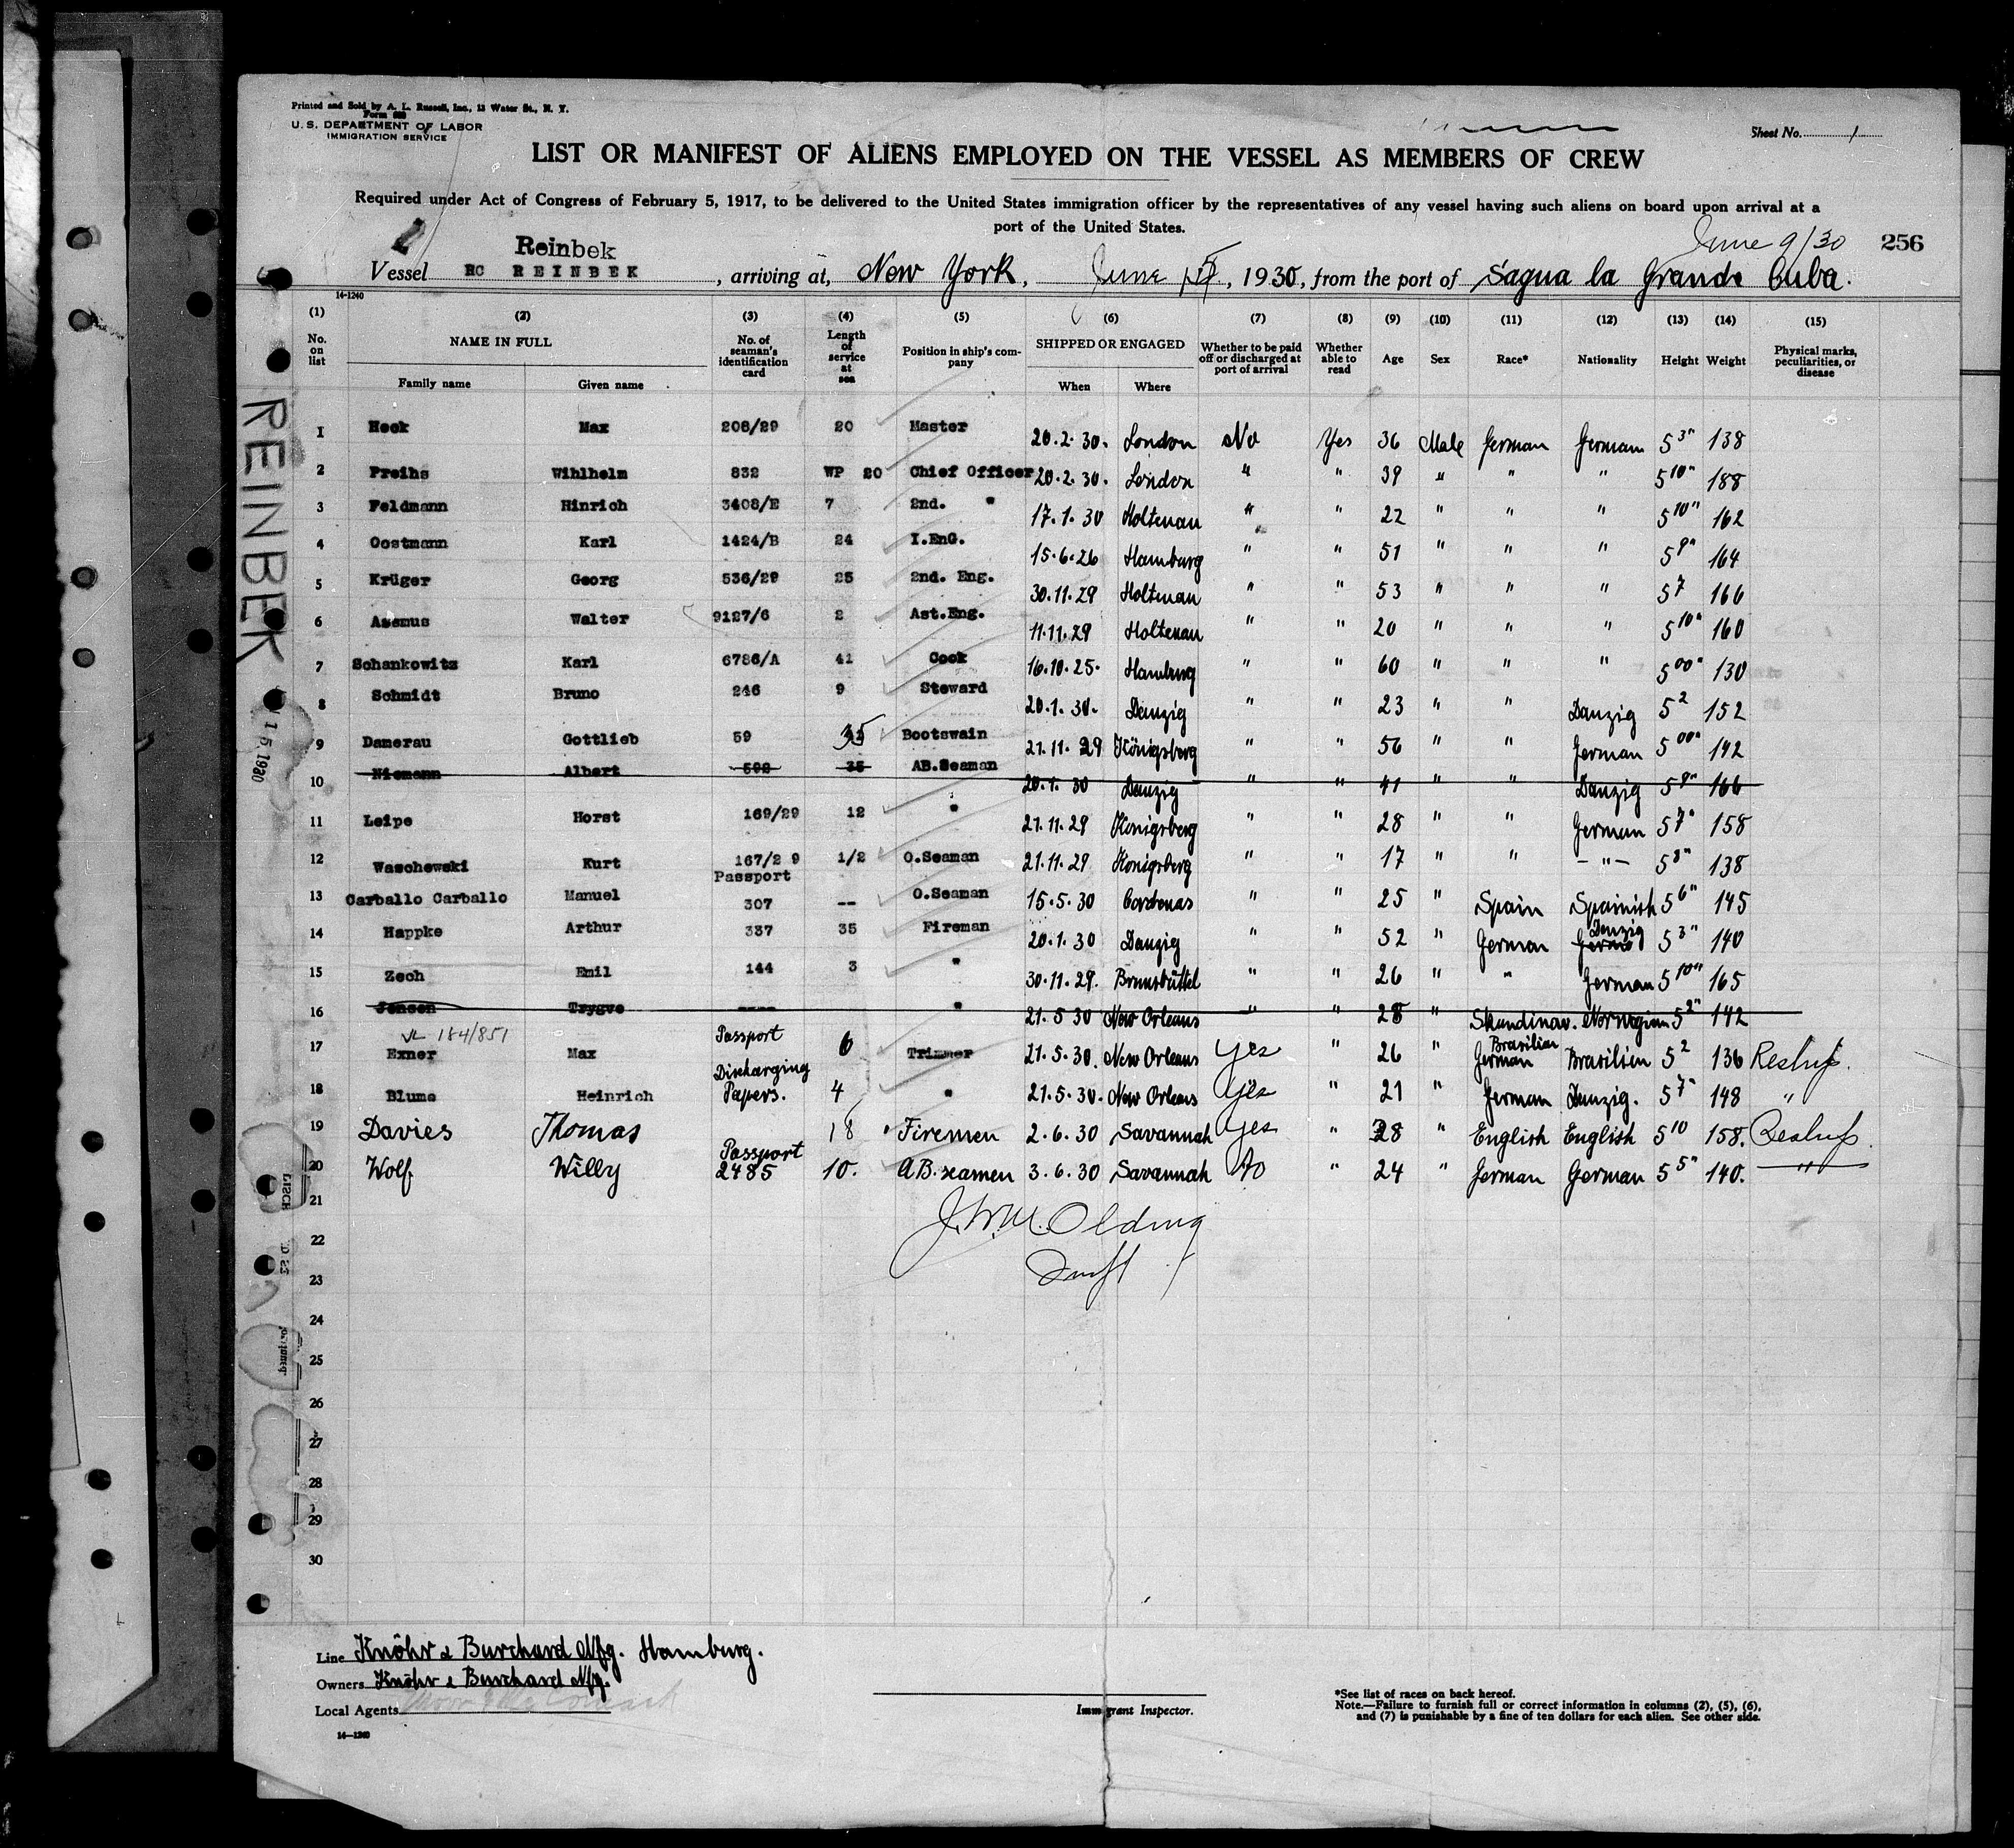 Printed and Sold by A. L. Russell, Inc., 13 Water St., N. Y.
U. S. DEPARTMENT OF LABOR
IMMIGRATION SERVICE
Sheet No. 1
LIST OR MANIFEST OF ALIENS EMPLOYED ON THE VESSEL AS MEMBERS OF CREW
Required under Act of Congress of February 5, 1917, to be delivered to the United States immigration officer by the representatives of any vessel having such aliens on board upon arrival at a
port of the United States.
June 9/30 256
Reinbek
Vessel REINBEK, arriving at, New York, June 15, 1930, from the port of Sagua la Grande Cuba.
14-1240
(1) (2) (3) (4) (5) (6) (7) (8) (9) (10) (11) (12) (13) (14) (15)
No. on list NAME IN FULL Family name Given name No. of seaman's identification card Length of service at sea Position in ship's company SHIPPED OR ENGAGED When Where Whether to be paid off or discharged at port of arrival Whether able to read Age Sex Race* Nationality Height Weight Physical marks, peculiarities, or disease
1 Heck Max 208/29 20 Master 20.2.30. London No Yes 36 Male German German 5 3" 138
2 Preihs Wihlhelm 832 WP 20 Chief Officer 20.2.30. London " " 39 " " " 5 10" 188
3 Feldmann Hinrich 3408/E 7 2nd. " 17.1.30 Holtenau " " 22 " " " 5 10" 162
4 Oostmann Karl 1424/B 24 I.EnG. 15.6.26 Hamburg " " 51 " " " 5 9" 164
5 Krüger Georg 536/29 25 2nd. Eng. 30.11.29 Holtenau " " 53 " " " 5 7 166
6 Asemus Walter 9127/6 2 Ast.Eng. 11.11.29 Holtenau " " 20 " " " 5 10" 160
7 Schankowitz Karl 6786/A 41 Cook 16.10.25. Hamburg " " 60 " " " 5 00" 130
8 Schmidt Bruno 246 9 Steward 20.1.30. Danzig " " 23 " " Danzig 5 2 152
9 Damerau Gottlieb 59 35 Bootswain 21.11.29 Königsberg " " 56 " " German 5 00" 142
10 Niemann Albert 592 35 AB.Seaman 20.1.30 Danzig " " 41 " " Danzig 5 9" 166
11 Leipe Horst 169/29 12 " 21.11.29 Konigsberg " " 28 " " German 5 7" 158
12 Waschewski Kurt 167/2 9 1/2 O.Seaman 21.11.29 Konigsberg " " 17 " " -"- 5 8" 138
Passport
13 Carballo Carballo Manuel 307 -- O.Seaman 15.5.30 Cardenas " " 25 " Spain Spainish 5 6" 145
Danzig
14 Happke Arthur 337 35 Fireman 20.1.30 Danzig " " 52 " German German 5 3" 140
15 Zech Emil 144 3 " 30.11.29. Brunsbüttel " " 26 " " German 5 10" 165
16 Jensen Trygve ---- " 21.5.30 New Orleans " " 28 " Skandinav. Norwegian 5 2" 142
184/851 Passport Brasilian
17 Exner Max 6 Trimmer 21.5.30. New Orleans Yes " 26 " German Brasilien 5 2 136
Discharging
18 Blume Heinrich Papers. 4 " 21.5.30. New Orleans Yes " 21 " German Danzig. 5 7" 148 "
19 Davies Thomas 18 " Firemen 2.6.30 Savannah Yes " 28 " English English 5 10 158.
Passport
20 Wolf Willy 2485 10. AB.seamen 3.6.30 Savannah No " 24 " German German 5 5" 140. "
21
J. Wm. Olding
22
23
24
25
26
27
28
29
30
REINBEK
15, 1930
Line Knöhr & Burchard Nfg. Hamburg.
Owners Knöhr & Burchard Nfg.
Local Agents
Immigrant Inspector.
*See list of races on back hereof.
Note.—Failure to furnish full or correct information in columns (2), (5), (6),
and (7) is punishable by a fine of ten dollars for each alien. See other side.
14—1240